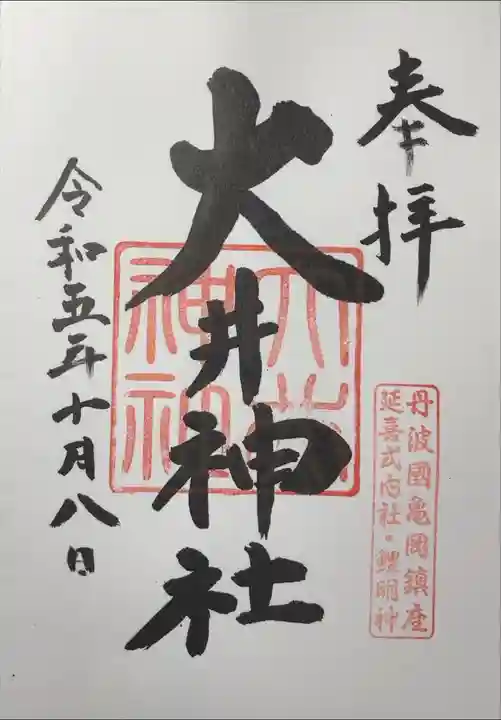 奉拝
丹波國亀岡鎮座
延喜式内社・鯉明神
大井神社
令和五年十月八日